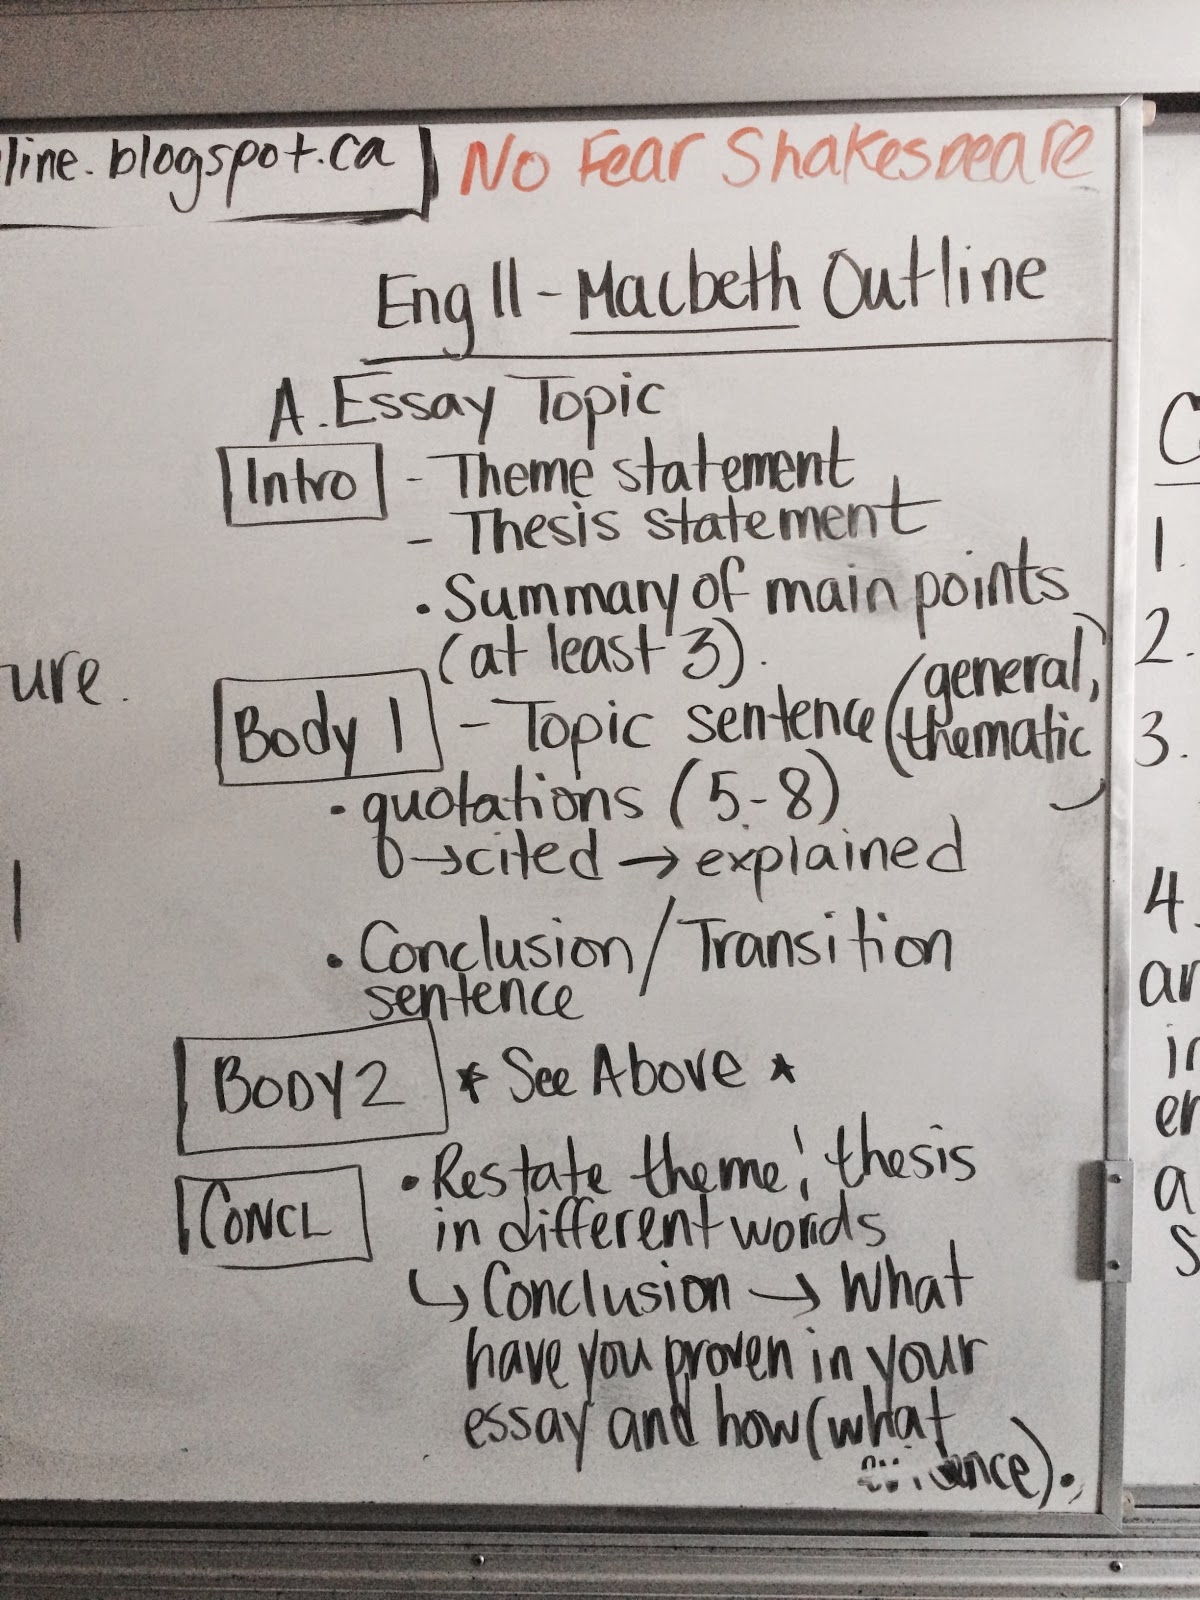 line.blogspot.ca
No Fear Shakespeare
Eng 11 - Macbeth Outline
A. Essay Topic
Intro - Theme statement
- Thesis statement
• Summary of main points
(at least 3).
Body 1 - Topic sentence (general,
thematic)
• quotations (5-8)
↳ →cited → explained
• Conclusion / Transition
sentence
BODY 2 * See Above *
CONCL • Restate theme ! thesis
in different words
↳ Conclusion → What
have you proven in your
essay and how (what
evidence).
ure.
C
1.
2.
3.
4.
ar
in
en
a
S